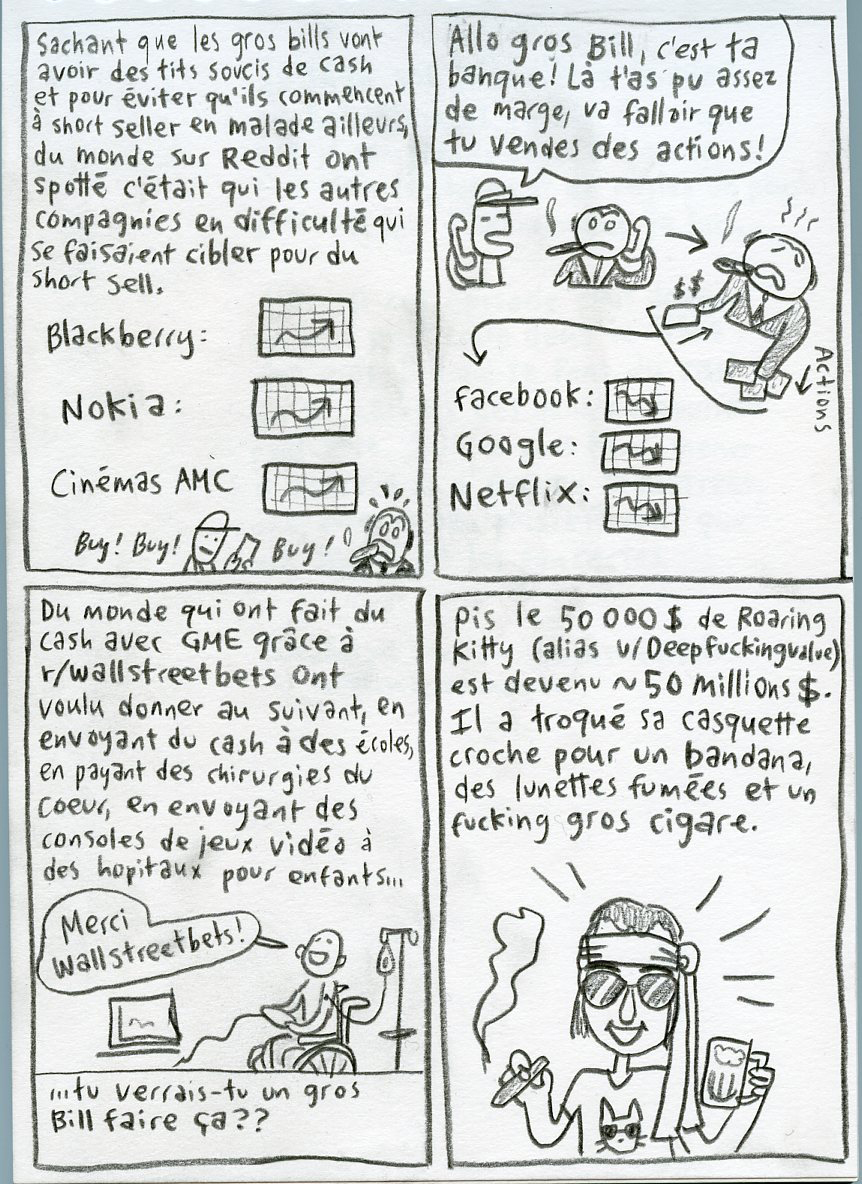 Sachant que les gros bills vont
avoir des tits soucis de cash
et pour éviter qu'ils commencent
à short seller en malade ailleurs,
du monde sur Reddit ont
spotté c'était qui les autres
compagnies en difficulté qui
se faisaient cibler pour du
short sell.
Blackberry:
Nokia:
Cinémas AMC
Buy! Buy! Buy!
Allo gros Bill, c'est ta
banque! Là t'as pu assez
de marge, va falloir que
tu vendes des actions!
$$
Actions
facebook:
Google:
Netflix:
Du monde qui ont fait du
cash avec GME grâce à
r/wallstreetbets ont
voulu donner au suivant, en
envoyant du cash à des écoles,
en payant des chirurgies du
coeur, en envoyant des
consoles de jeux vidéo à
des hopitaux pour enfants...
Merci
Wallstreetbets!
...tu verrais-tu un gros
Bill faire ça??
Pis le 50 000$ de Roaring
Kitty (alias u/Deepfuckingvalue)
est devenu ~50 millions $.
Il a troqué sa casquette
croche pour un bandana,
des lunettes fumées et un
fucking gros cigare.